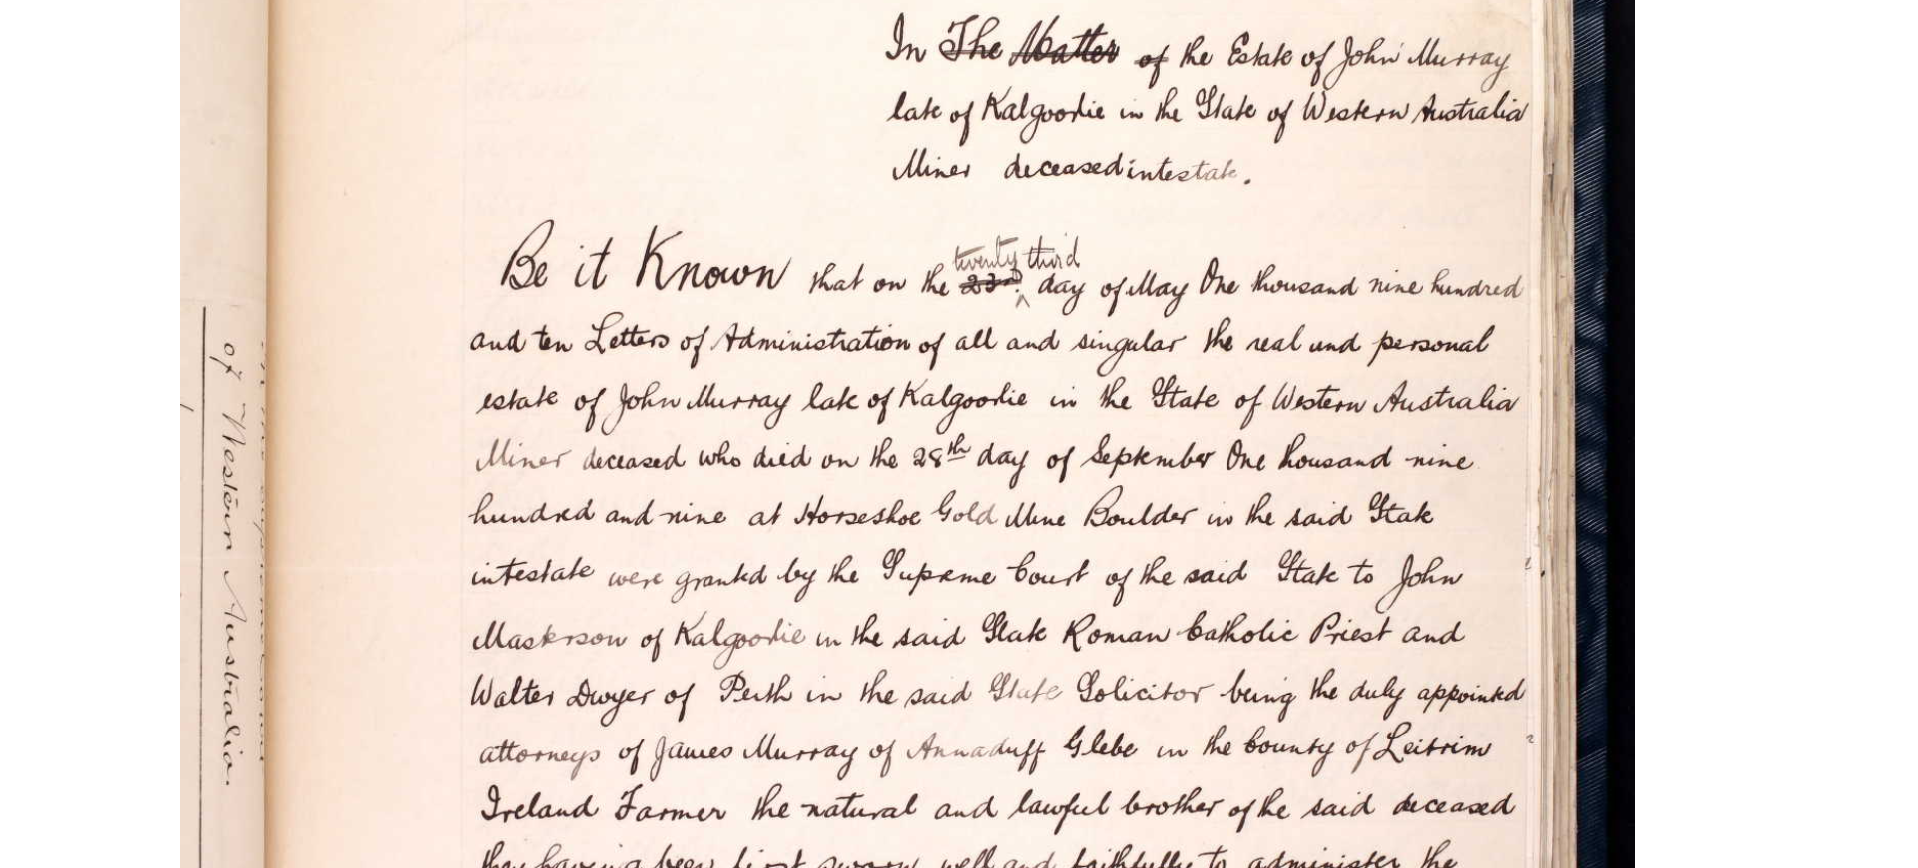 In The Matter of the Estate of John Murray
late of Kalgoorlie in the State of Western Australia
Miner deceased intestate.
twenty third
Be it Known that on the 23rd. day of May One thousand nine hundred
and ten Letters of Administration of all and singular the real and personal
estate of John Murray late of Kalgoorlie in the State of Western Australia
Miner deceased who died on the 28th day of September One thousand nine
hundred and nine at Horseshoe Gold Mine Boulder in the said State
intestate were granted by the Supreme Court of the said State to John
Masterson of Kalgoorlie in the said State Roman Catholic Priest and
Walter Dwyer of Perth in the said State Solicitor being the duly appointed
attorneys of James Murray of Annaduff Glebe in the County of Leitrim
Ireland Farmer the natural and lawful brother of the said deceased
they having been first sworn well and faithfully to administer the
of Western Australia.